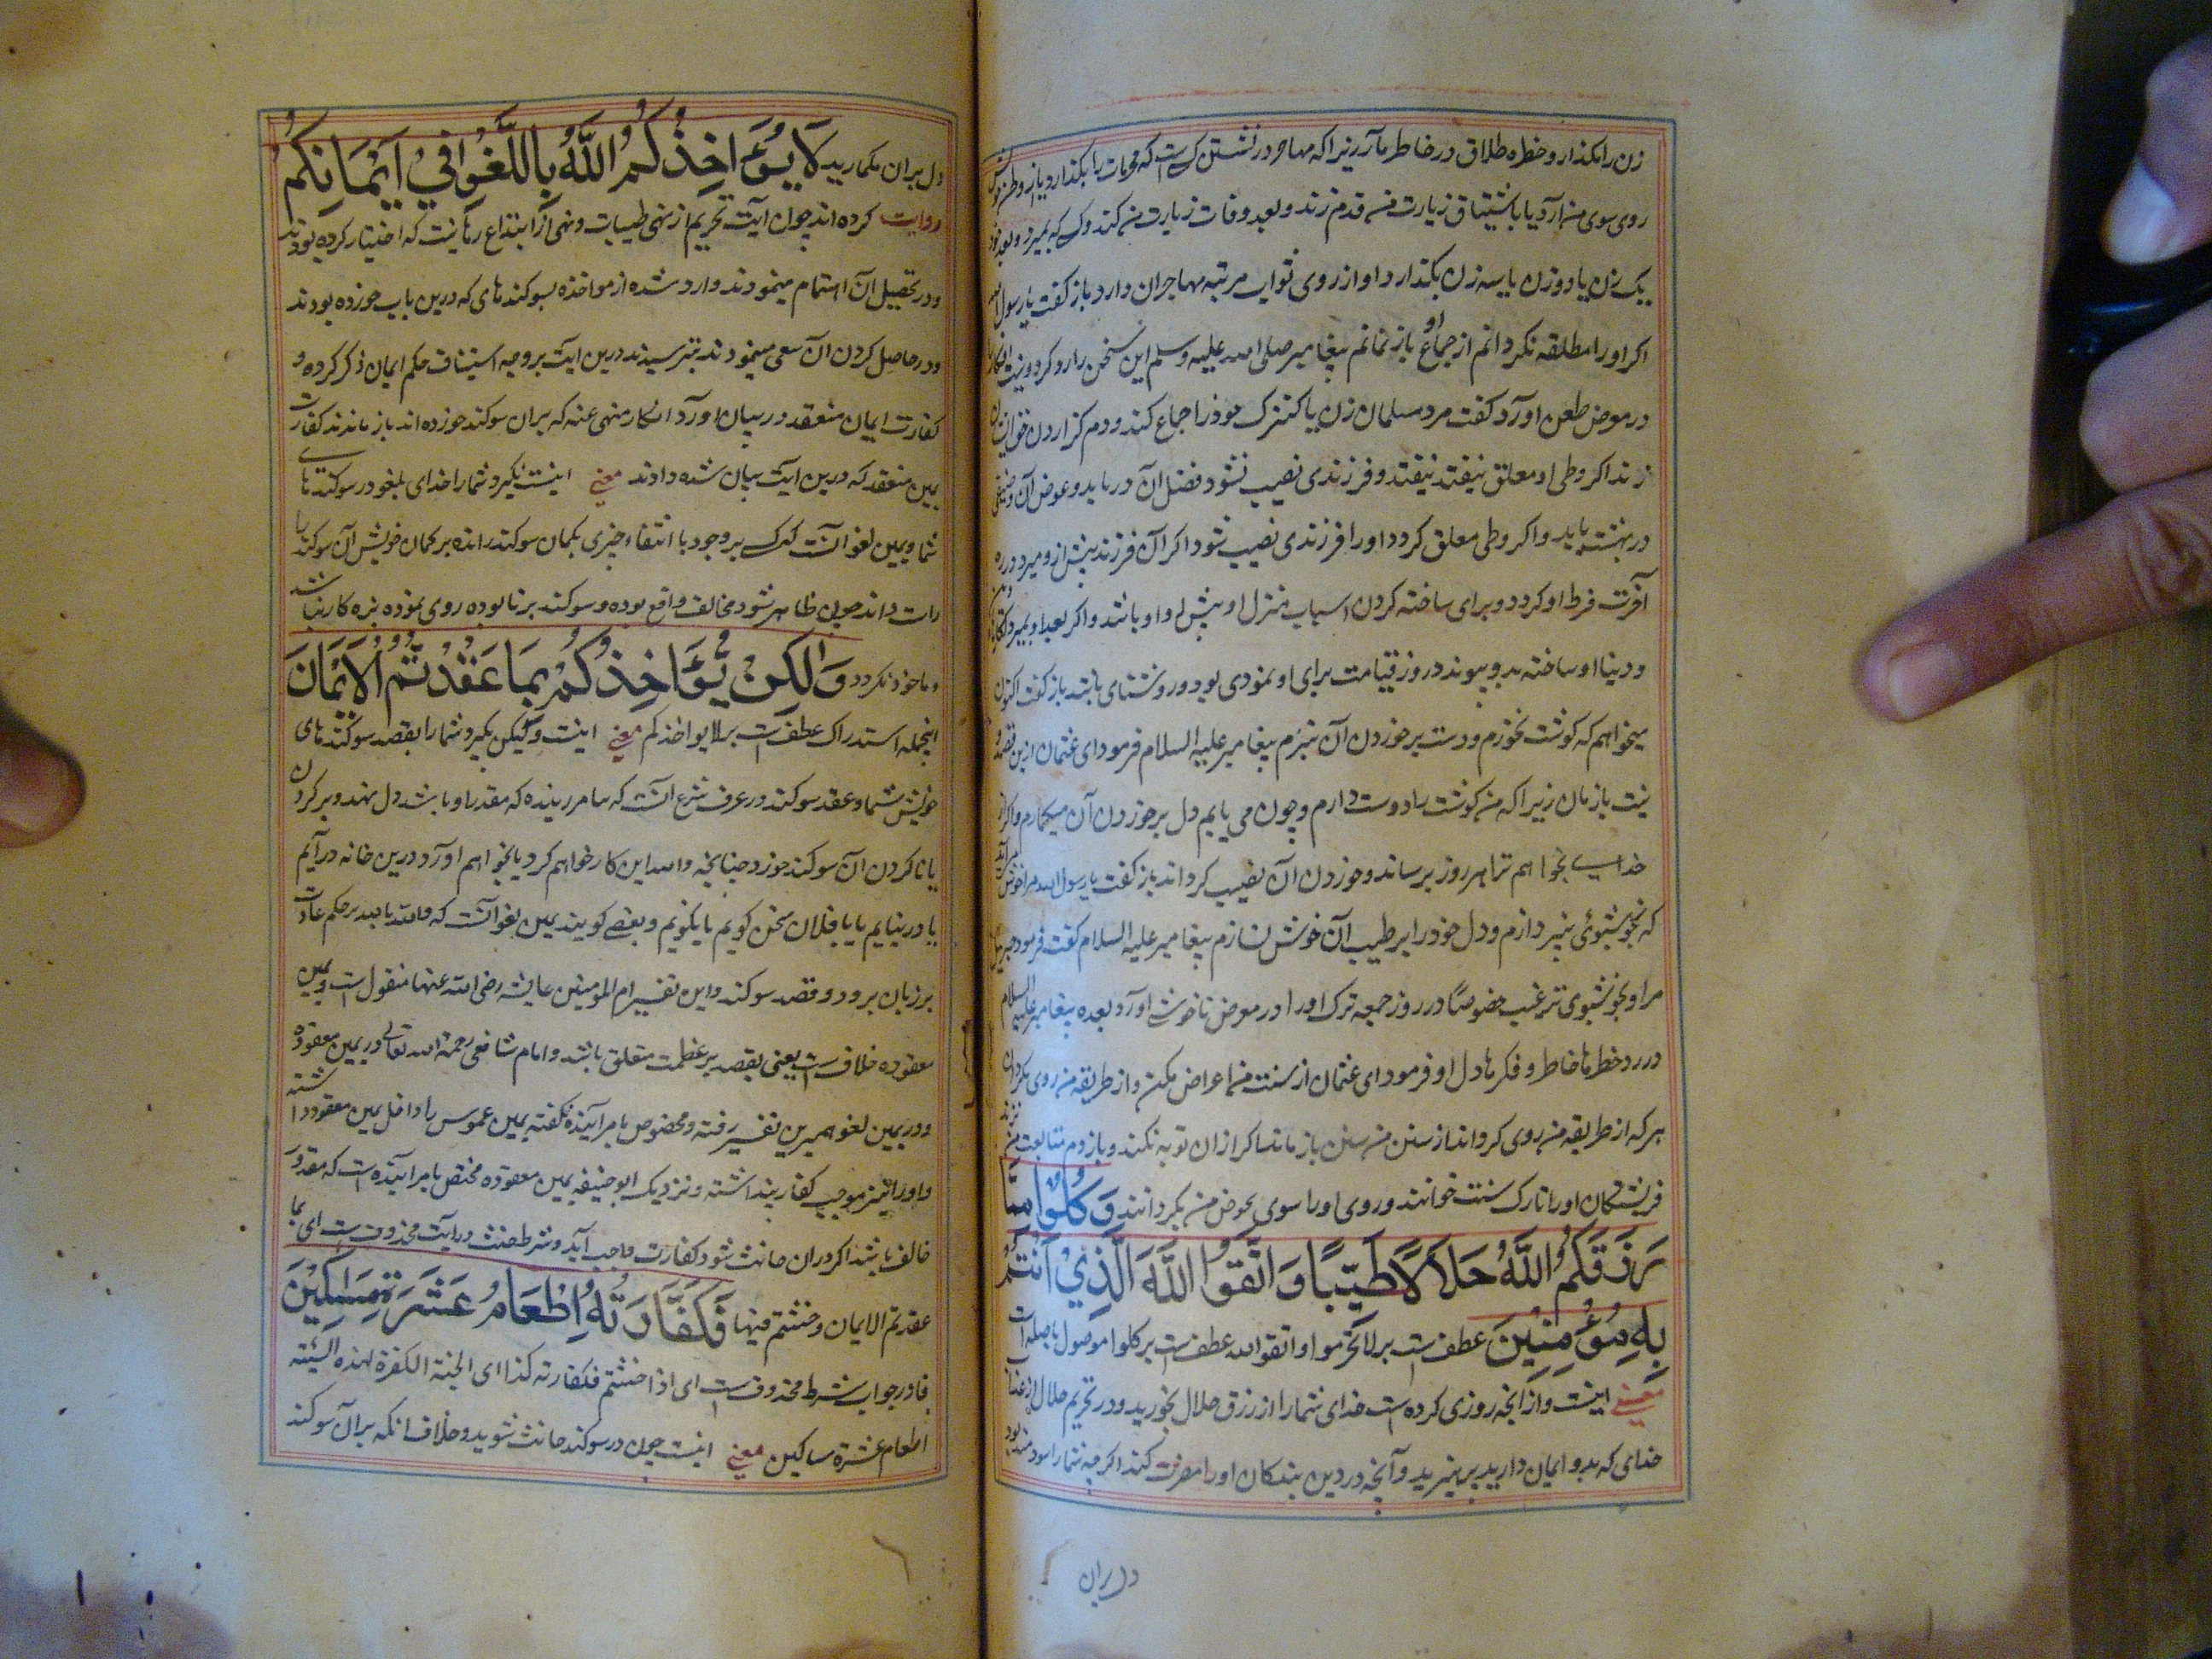 زن را بگذار و خطره طلاق در خاطر میآر زیرا که مهاجر در نشستن کسی است که محرمات را بگذارد یا از وطن خویش
روی سوی من آرد یا باشتیاق زیارت من قدم زند و بعد وفات زیارت من کند و کسی که بمیرد و بعد خود
یک زن یا دو زن یا سه زن بگذارد او از روی ثواب مرتبه مهاجران دارد باز کفت یا رسول الله
اکر او را مطلقه نکردانم از جماع او باز نمانم پیغامبر صلی الله علیه وسلم این سخن را رد کرد و نیت انکار
در موضع طعن آورد کفت مرد مسلمان زن یا کنیزک خود را جماع کند و دم کزاردن
زند اکر وطی او معلق نیفتد نیفتد و فرزندی نصیب نشود فضل آن دریابد و عوض آن
در بهشت یابد و اکر وطی معلق کردد او را فرزندی نصیب شود اکر آن فرزند پیش ازو میرد در ره
آخرت فرط او کردد و برای ساخته کردن اسباب منزل او پیش او باشد و اکر بعد او بمیرد
و دینا او ساخته بدو پیوند در روز قیامت برای او نمودی بود و روشنائی باشد باز کفت اکنون
میخواهم که کوشت نخورم و دست بر خوردن آن نبرم پیغامبر علیه السلام فرمود ای عثمان ازین قصد و
نیت باز مان زیرا که من کوشت را دوست دارم و چون می یابم دل بر خوردن آن میکمارم و اکر از
خدای بخواهم ترا هر روز برساند و خوردن آن نصیب کرداند باز کفت یا رسول الله مرا خوش
که بخوشبوئی نپردازم و دل خود را بر طیب آن خوش نسازم پیغامبر علیه السلام کفت فرمود جبرئیل
مرا و بخوشبوی ترغیب خصوصًا در روز جمعه ترک او را در موضع ناخوشی آورد بعده پیغامبر علیه السلام
در رد خطرها خاطر و فکرها دل او فرمود ای عثمان از سنت من اعراض مکن و از طریقه من روی مکردان
هر که از طریقه من روی کرداند از سنن من سنن باز ماند اکر ازان توبه نکند و باز دم متابعت من
فریشتکان او را تارک سنت خوانند و روی او را سوی حوض من نکردانند وَكُلُوْا مِمَّا
رَزَقَكُمُ اللّٰهُ حَلَالًا طَيِّبًا وَاتَّقُوا اللّٰهَ الَّذِيْ اَنْتُمْ
بِهِ مُؤْمِنِيْنَ عطف است بر لا تحرموا و اتقوا الله عطف است بر کلوا موصول با صله است
معنی اینست و از آنچه روزی کرده است خدای شما را از رزق حلال بخورید و در تحریم حلال از عذاب
خدای که بدو ایمان دارید بپرهیزید و آنچه در دین بندکان او را مضرت کند اکرچه شما را سودمند بود
دل بران
دل بران بکمارید لَا يُؤَاخِذُكُمُ اللّٰهُ بِاللَّغْوِ فِيْ اَيْمَانِكُمْ
روایت کرده اند چون آیت تحریم از نهی طیبات و نهی از ابتداع رهبانیت که اختیار کرده بودند
و در تحصیل آن اهتمام مینمودند وارد شده از مواخذه بسوکندهای که درین باب خورده بودند
و در حاصل کردن آن سعی مینمودند بترسیدند درین آیت بر وجه استیناف حکم ایمان ذکر کرده و
کفارت ایمان منعقد در بیان آورد انکار منهی عنه که بران سوکند خورده اند باز ماندند کفارت
یمین منعقد که درین آیت بیان شده دادند معنی اینست نکیرد شما را خدای بلغو در سوکندهای
شما و یمین لغو آنست که کسی بر وجود یا انتفاء چیزی بکمان سوکند رانده بر کمان خویش آن سوکند را
راست داند چون ظاهر شود مخالف واقع بوده و سوکند بر نابوده روی نموده بنده کار نباشد
و ماخوذ نکردد وَلٰكِنْ يُّؤَاخِذُكُمْ بِمَا عَقَّدْتُّمُ الْاَيْمَانَ
اینجمله استدراک عطف است بر لا یواخذکم معنی اینست ولیکن بکیرد شما را بقصد سوکندهای
خویش شما و عقد سوکند در عرف شرع آنست که بامر آینده که مقدر او باشد دل نهد و بر کردن
یا ناکردن آن سوکند خورد چنانچه والله این کار خواهم کرد یا نخواهم آورد و درین خانه درآیم
یا درنیایم یا با فلان سخن کویم یا نکویم و بعضی کویند یمین لغو آنست که والله بالله بر حکم عادت
بر زبان برود و قصد سوکند و این تفسیر ام المومنین عایشه رضی الله عنها منقول است و یمین
معقوده خلاف است یعنی بقصد بر عظمت متعلق باشد و امام شافعی رحمة الله تعالی در یمین معقوده
و در یمین لغو همبرین تفسیر رفته و مخصوص بامر آینده نکفته یمین غموس را داخل یمین معقوده داشته
و او را نیز موجب کفارت پنداشته و نزدیک ابو حنیفه یمین معقوده مختص بامر آینده است که مقدور
خالف باشد اکر دران حانث شود کفارت واجب آید و شرط حنث در آیت محذوف است ای بما
عقدتم الایمان و حنثتم فیها فَكَفَّارَتُهُ اِطْعَامُ عَشَرَةِ مَسَاكِيْنَ
فا در جواب شرط محذوف است ای اذا حنثتم فکفارته کذا ای الجنة الکفرة لهذه السیئة
اطعام عشرة مساکین معنی اینست چون در سوکند حانث شوید و خلاف آنکه بر آن سوکند